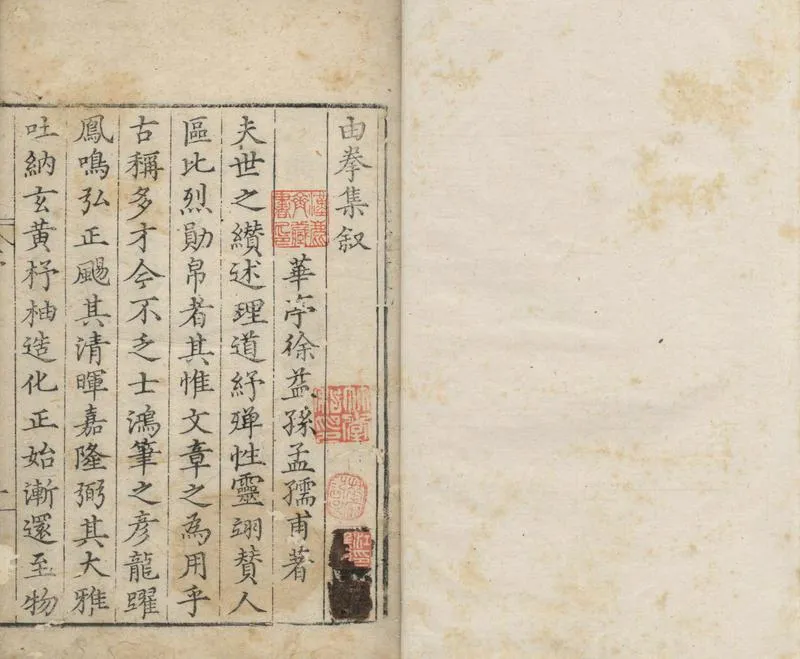 由拳集叙
華亭徐益孫孟孺甫著
夫世之纉述理道紓殫性靈翊赞人
區比烈勛帛者其惟文章之為用乎
古稱多才今不乏士鴻筆之彦龍躍
鳳鳴弘正颺其清暉嘉隆弼其大雅
吐納玄黄杼柚造化正始漸還至物